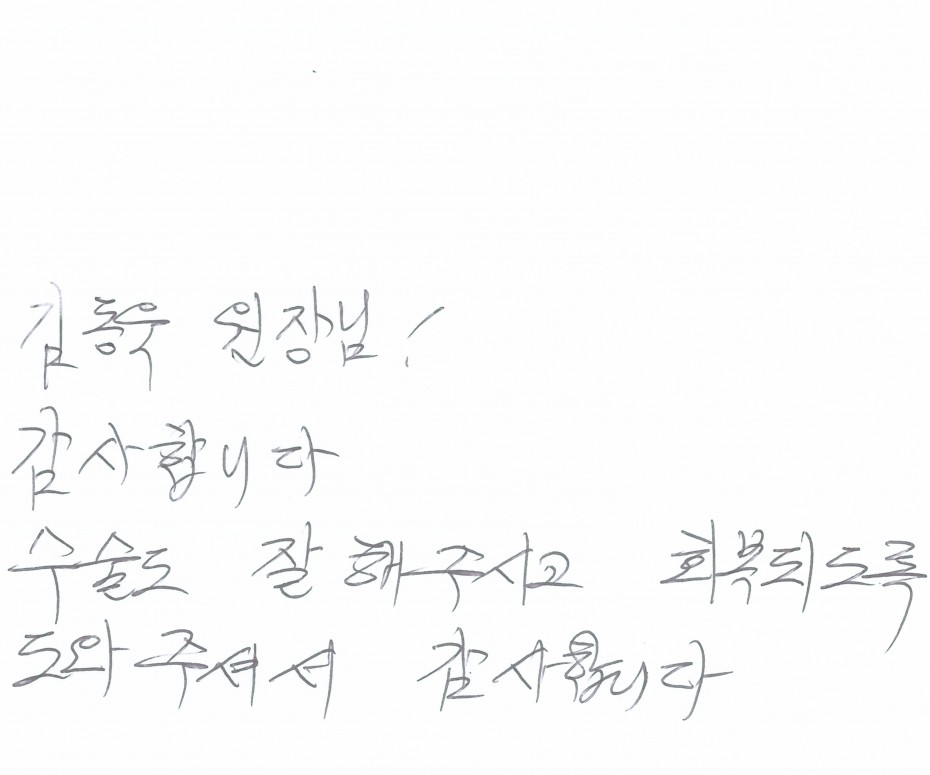 김동욱 원장님!
감사합니다
수술도 잘 해주시고 회복되도록
도와주셔서 감사합니다